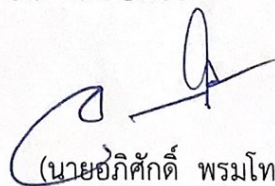 (นายอภิศักดิ์ พรมโท